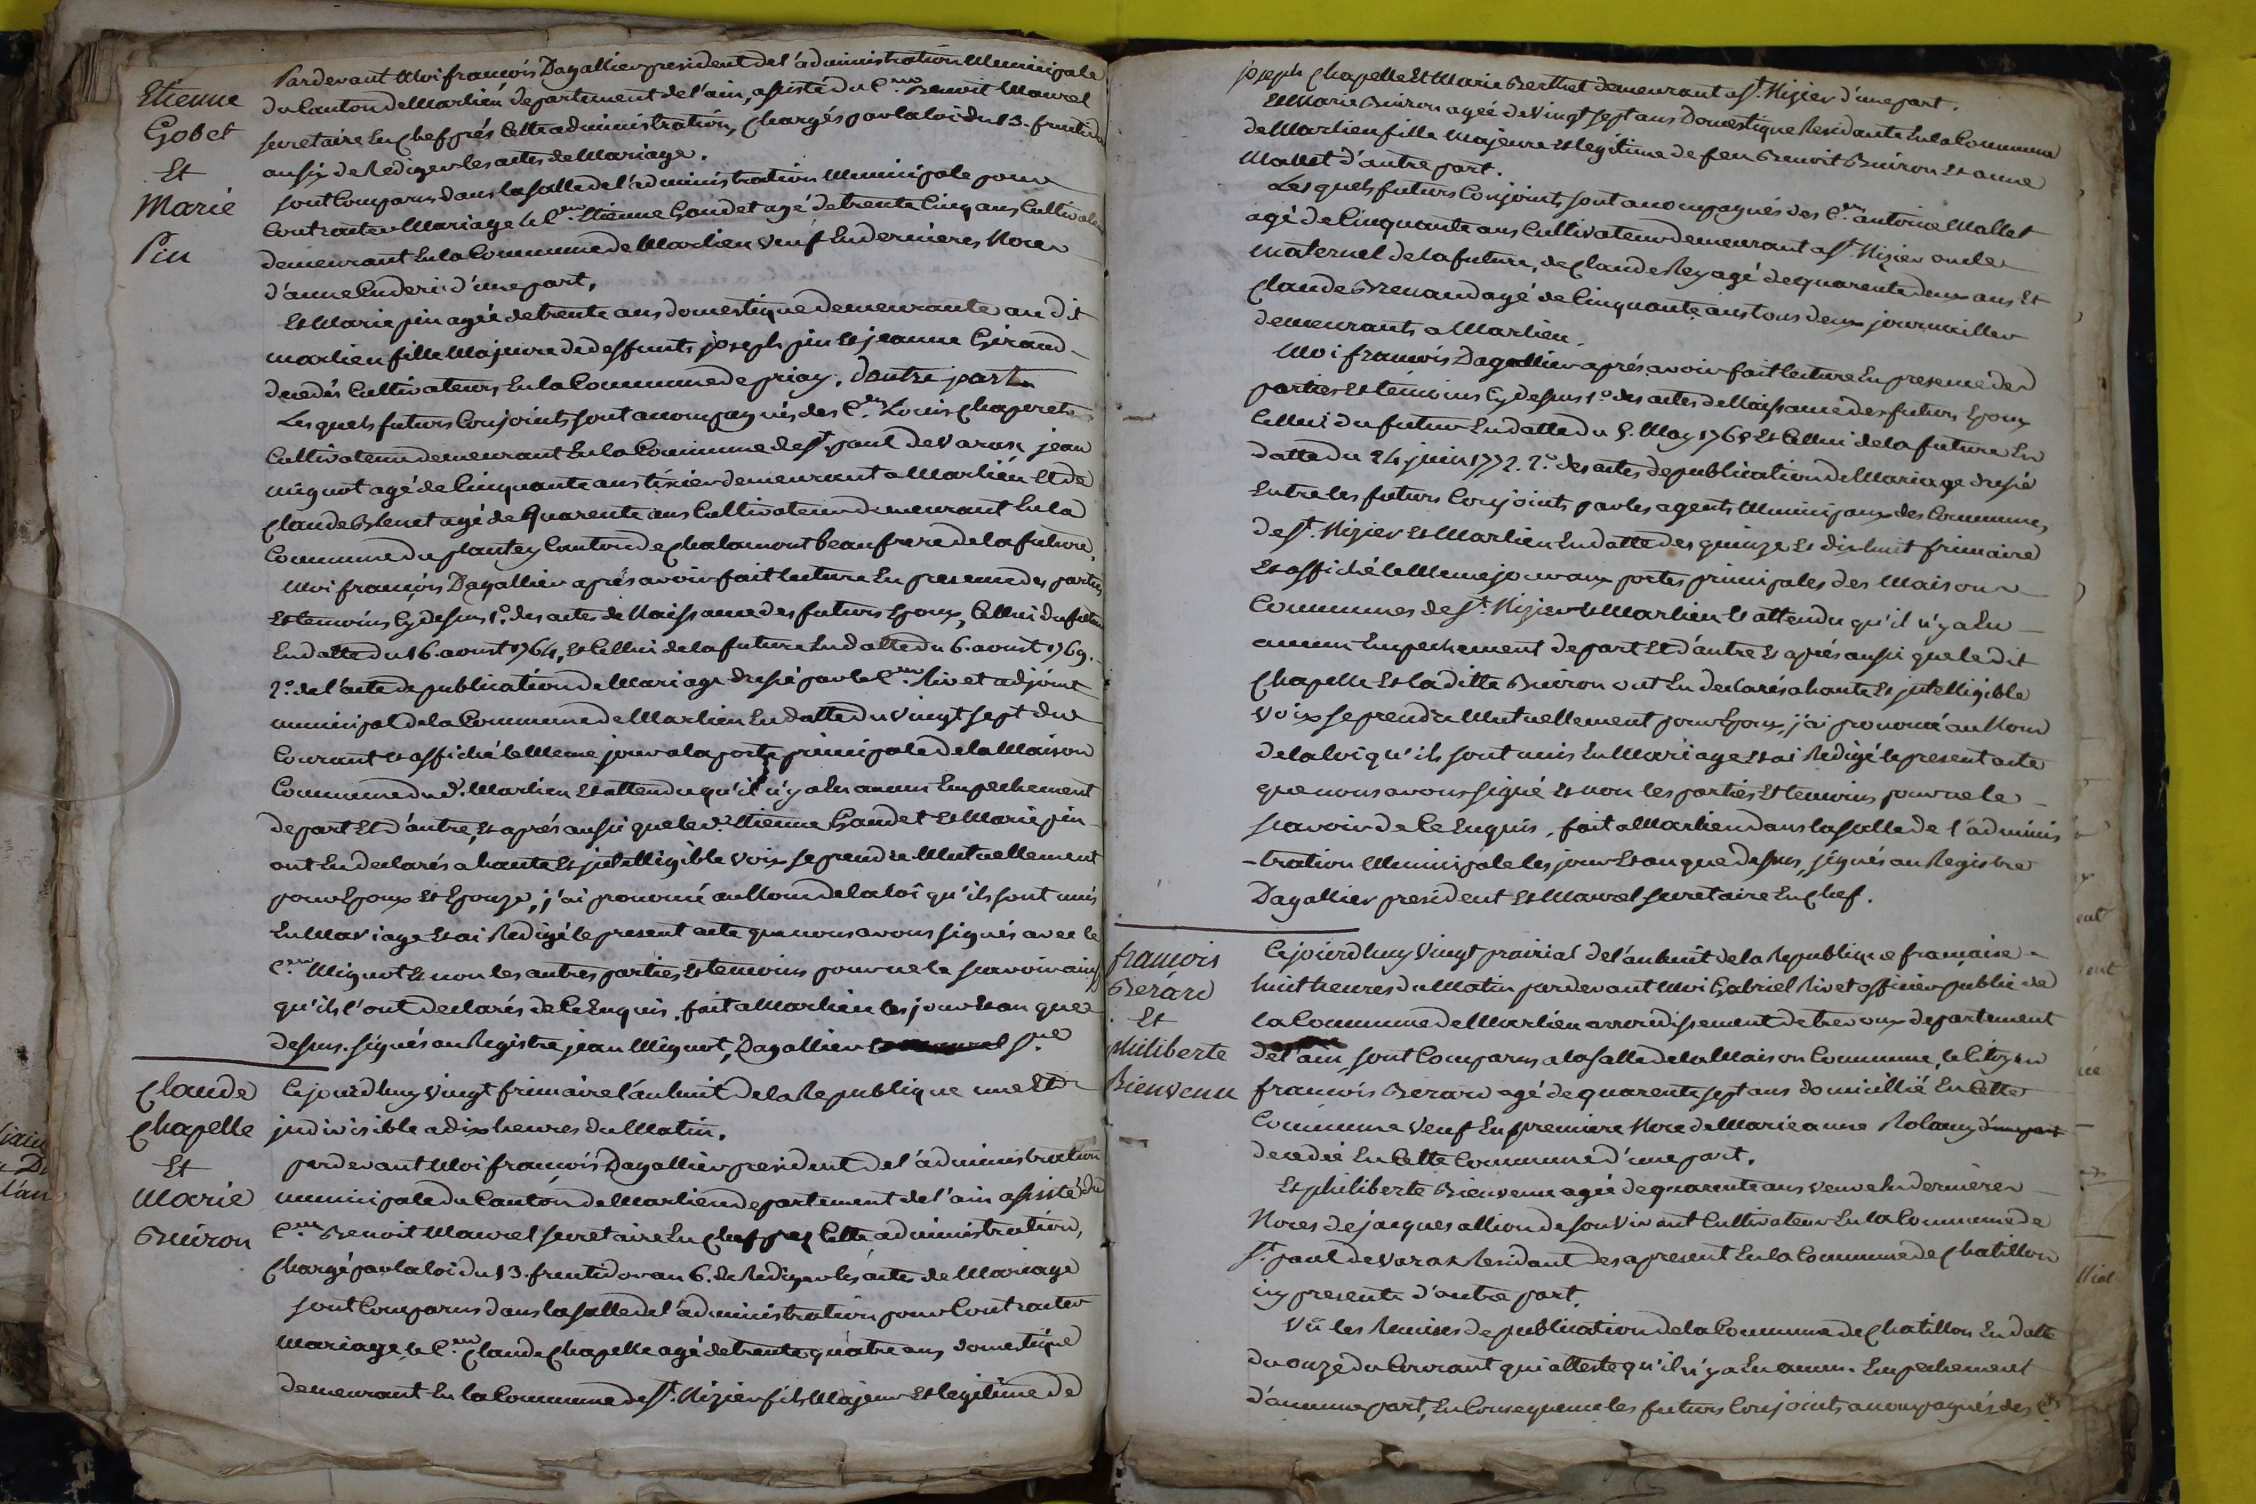 Etienne
Gobet
Et
Marie
Pin
Pardevant Moi françois Dagallier president de l'administration Municipale
du Canton de Marlieu departement de l'ain, assisté du C.en Benoit Maurel
secretaire En Chef prés Cette administration, Chargés par la loi du 13. fructidor
an six de Rediger les actes de Mariage.
sont Comparus dans la salle de l'administration Municipale pour
Contracter Mariage le C.en Etienne Gaudet agé de trente Cinq ans Cultivateur
demeurant En la Commune de Marlieu veuf En dernieres Noces
d'anne d'une part,
Et Marie pin agée de trente ans domestique demeurante au dit
marlieu fille Majeure de deffunts joseph pin Et jeanne Giraud
decedés Cultivateurs En la Commune de priay. d'autre part
Lesquels futurs Conjoints sont accompagnés des C.ens Louis Chaperet
Cultivateur demeurant En la Commune de S.t paul de Varax, jean
mignot agé de Cinquante ans tixier demeurant a Marlieu Et de
Claude Blenet agé de Quarente ans Cultivateur demeurant En la
Commune du plantey Canton de Chalamont beaufrere de la future,
Moi françois Dagallier aprés avoir fait lecture En presence des parties
Et temoins Cy dessus 1.o des actes de Naissance des futurs Epoux, Cellui du futur
En datte du 16. aoust 1764, Et Cellui de la future En datte du 6. aoust 1769.
2.o de l'acte de publication de Mariage dressé par le C.en Rivet adjoint
municipal de la Commune de Marlieu En datte du vingt sept du
Courant Et affiché le Meme jour a la porte principale de la Maison
Commune du d. Marlieu Et attendu qu'il n'y a Eu aucuns Empechement
de part Et d'autre, Et aprés aussi que le d. Etienne Gaudet Et Marie pin
ont Eu declarés a haute Et jntelligible voix se prendre Mutuellement
pour Epoux Et Epouze, j'ai prononcé au Nom de la loi qu'ils sont unis
En Mariage Et ai Redigé le present acte que nous avons signés avec le
C.en Mignot Et non les autres parties Et temoins pour ne le scavoir ainsy
qu'ils l'ont declarés de Ce Enquis. fait a Marlieu les jour Et an que
dessus. signés au Registre jean Mignot, Dagallier Et Maurel S.re
Claude
Chapelle
Et
Marie
Buiron
Cejourd'huy vingt frimaire l'an huit de la Republique une Et
jndivisible a dix heures du Matin.
pardevant Moi françois Dagallier president de l'administration
municipale du Canton de Marlieu departement de l'ain assisté du
C.en Benoit Maurel secretaire En Chef prez Cette administration,
Chargé par la loi du 13. fructidor an 6. de Rediger les actes de Mariage
sont Comparus dans la salle de l'administration pour Contracter
Mariage, le C.en Claude Chapelle agé de trente quatre ans domestique
demeurant En la Commune de S.t Nizier fils Majeur Et legitime de
joseph Chapelle Et Marie Berthet demeurant a S.t Nizier d'une part.
Et Marie Buiron agée de vingt sept ans Domestique Residante En la Commune
de Marlieu fille Majeure Et legitime de feu Benoit Buiron Et anne
Mallet d'autre part.
Lesquels futurs Conjoints sont accompagnés des C.ens antoine Mallet
agé de Cinquante ans Cultivateur demeurant a S.t Nizier oncle
maternel de la future, de Claude Rey agé de quarente deux ans Et
Claude Brevand agé de Cinquante ans tous deux journaillier
demeurants a Marlieu.
Moi francois Dagallier aprés avoir fait lecture En presence des
parties Et témoins Cy dessus 1.o des actes de Naissance des futurs Epoux
Cellui du futur En datte du 5. May 1765 Et Cellui de la future En
datte du 24 juin 1772. 2.o des actes de publication de Mariage dressé
Entre les futurs Conjoints par les agents Municipaux des Communes
de S.t Nizier Et Marlieu En datte des quinze Et dixhuit frimaire
Et affiché le Meme jour aux portes principales des Maisons
Communes de S.t Nizier Et Marlieu Et attendu qu'il n'y a Eu
aucun Empechement de part Et d'autre Et aprés aussi que le dit
Chapelle Et la ditte Buiron ont Eu declarés a haute Et jntelligible
voix se prendre Mutuellement pour Epoux, j'ai prononcé au Nom
de la loi qu'ils sont unis En Mariage Et ai Redigé le present acte
que nous avons signé Et non les parties Et temoins pour ne le
scavoir de Ce Enquis, fait a Marlieu dans la salle de l'adminis
-tration Municipale les jour Et an que dessus, signés au Registre
Dagallier president Et Maurel secretaire En Chef.
francois
Berard
Et
philiberte
Bienvenu
Cejourd'huy vingt prairial de l'an huit de la Republique francaise a
huit heures du Matin pardevant Moi Gabriel Rivet officier public de
la Commune de Marlieu arrondissement de trevoux departement
de l'ain, sont Comparus a la salle de la Maison Commune, le Citoyen
francois Berard agé de quarente sept ans domicillié En Cette
Commune veuf En premiere Noce de Marie anne Rolamy d'une part
decedée En Cette Commune d'une part.
Et philiberte Bienvenu agée de quarente ans veuve En dernières
Noces de jacques allion de son vivant Cultivateur En la Commune de
S.t paul de Varax Residant des a present En la Commune de Chatillon
icy presente d'autre part.
Vû les Remises de publication de la Commune de Chatillon En datte
du onze du Courant qui atteste qu'il n'y a Eu aucun Empechement
d'aucune part, En Consequence les futurs Conjoints accompagnés des C.ens